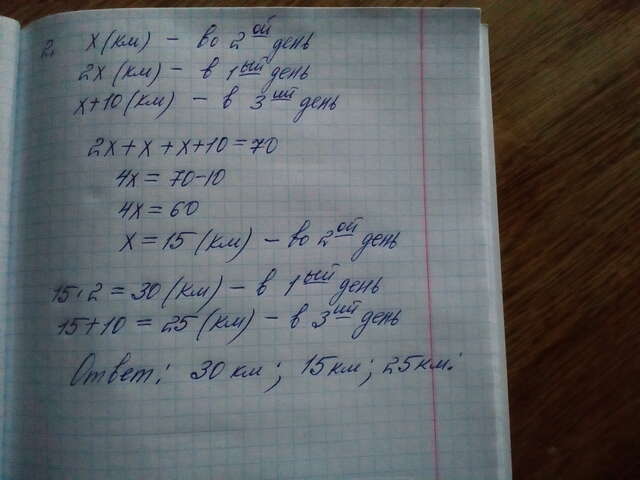 2. х (км) - во 2ой день
2х (км) - в 1ый день
х+10 (км) - в 3ий день
2х + х + х+10 = 70
4х = 70-10
4х = 60
х = 15 (км) - во 2ой день
15·2 = 30 (км) - в 1ый день
15+10 = 25 (км) - в 3ий день
Ответ: 30 км; 15 км; 25 км.